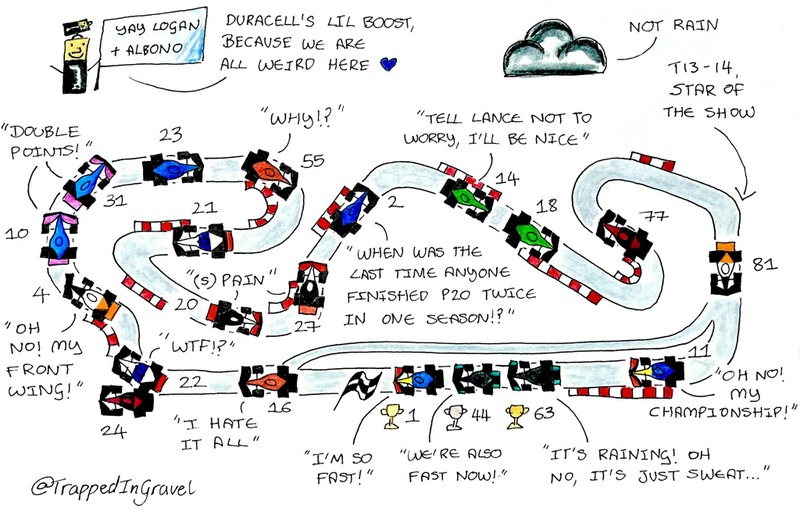 YAY LOGAN
+ ALBONO
DURACELL'S LIL BOOST,
BECAUSE WE ARE
ALL WEIRD HERE
NOT RAIN
T13-14,
STAR OF
THE SHOW
"DOUBLE
POINTS!"
23
"WHY!?"
55
"TELL LANCE NOT TO
WORRY, I'LL BE NICE"
31
10
21
2
14
18
77
81
"WHEN WAS THE
LAST TIME ANYONE
FINISHED P20 TWICE
IN ONE SEASON!?"
"(S) PAIN"
20
27
4
"OH
NO! MY
FRONT
WING!"
"WTF!?"
22
24
16
"I HATE
IT ALL"
1
44
63
11
"OH NO!
MY
CHAMPIONSHIP!"
"I'M SO
FAST!"
"WE'RE ALSO
FAST NOW!"
"IT'S RAINING! OH
NO, IT'S JUST SWEAT..."
@TrappedInGravel